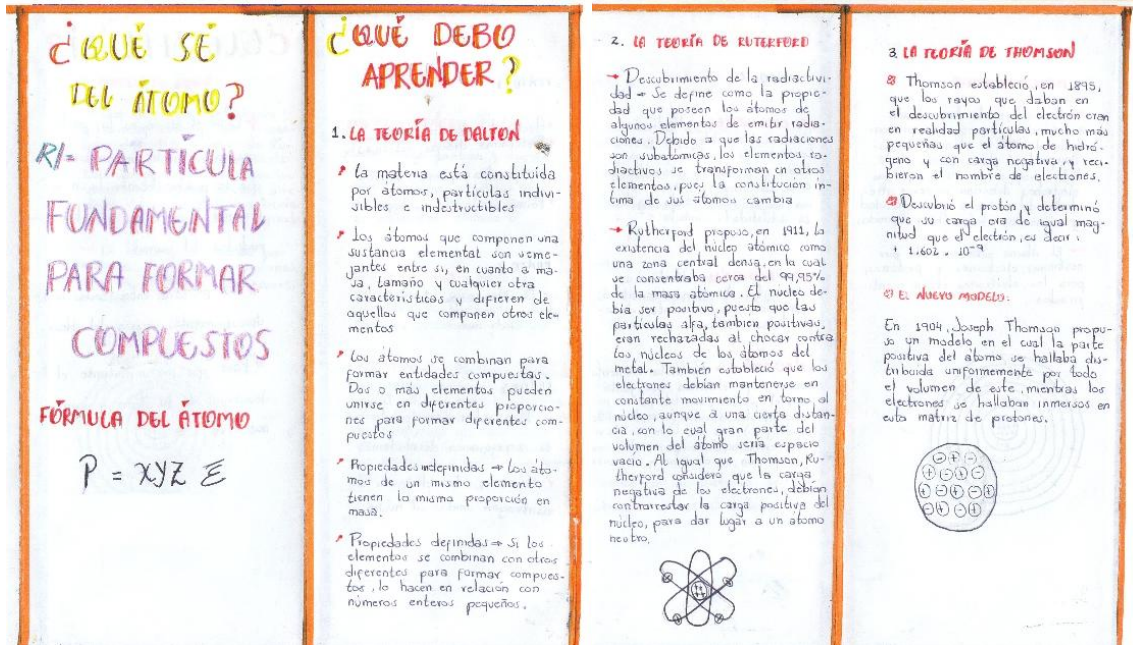 ¿QUÉ SÉ
DEL ÁTOMO?
R/= PARTÍCULA
FUNDAMENTAL
PARA FORMAR
COMPUESTOS
FÓRMULA DEL ÁTOMO
P = XYZ E
¿QUÉ DEBO
APRENDER?
1. LA TEORÍA DE DALTON
La materia está constituida
por átomos, partículas indivi-
sibles e indestructibles
Los átomos que componen una
sustancia elemental son seme-
jantes entre si, en cuanto a ma-
sa, tamaño y cualquier otra
característica y difieren de
aquellos que componen otros ele-
mentos
Los átomos se combinan para
formar entidades compuestas.
Dos o más elementos pueden
unirse en diferentes proporcio-
nes para formar diferentes com-
puestos
Propiedades indefinidas → Los áto-
mos de un mismo elemento
tienen la misma proporción en
masa.
Propiedades definidas → Si los
elementos se combinan con otros
diferentes para formar compues-
tos, lo hacen en relación con
números enteros pequeños.
2. LA TEORÍA DE RUTERFORD
→ Descubrimiento de la radiactivi-
dad → Se define como la propie-
dad que poseen los átomos de
algunos elementos de emitir radia-
ciones. Debido a que las radiaciones
son subatómicas, los elementos ra-
diactivos se transforman en otros
elementos, pues la constitución ín-
tima de sus átomos cambia
→ Rutherford propuso, en 1911, la
existencia del núcleo atómico como
una zona central densa, en la cual
se consentraba cerca del 99,95%
de la masa atómica. El núcleo de-
bía ser positivo, puesto que las
partículas alfa, también positivas,
eran rechazadas al chocar contra
los núcleos de los átomos del
metal. También estableció que los
electrones debían mantenerse en
constante movimiento en torno al
núcleo, aunque a una cierta distan-
cia, con lo cual gran parte del
volumen del átomo sería espacio
vacío. Al igual que Thomson, Ru-
therford consideró que la carga
negativa de los electrones, debían
contrarrestar la carga positiva del
núcleo, para dar lugar a un átomo
neutro.
3. LA TEORÍA DE THOMSON
Thomson estableció, en 1895,
que los rayos que daban en
el descubrimiento del electrón eran
en realidad partículas, mucho más
pequeñas que el átomo de hidró-
geno y con carga negativa, y reci-
bieron el nombre de electrones.
Descubrió el protón y determinó
que su carga era de igual mag-
nitud que el electrón, es decir:
+ 1.602 . 10⁻⁹
EL NUEVO MODELO:
En 1904, Joseph Thomson propu-
so un modelo en el cual la parte
positiva del átomo se hallaba dis-
tribuida uniformemente por todo
el volumen de este, mientras los
electrones se hallaban inmersos en
esta matriz de protones.